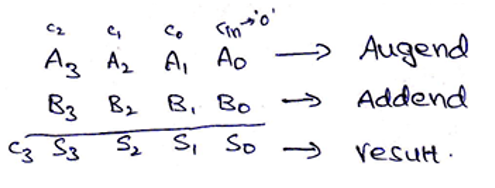 C₂ C₁ C₀ Cin→'0'
A₃ A₂ A₁ A₀ → Augend
B₃ B₂ B₁ B₀ → Addend
C₃ S₃ S₂ S₁ S₀ → result.